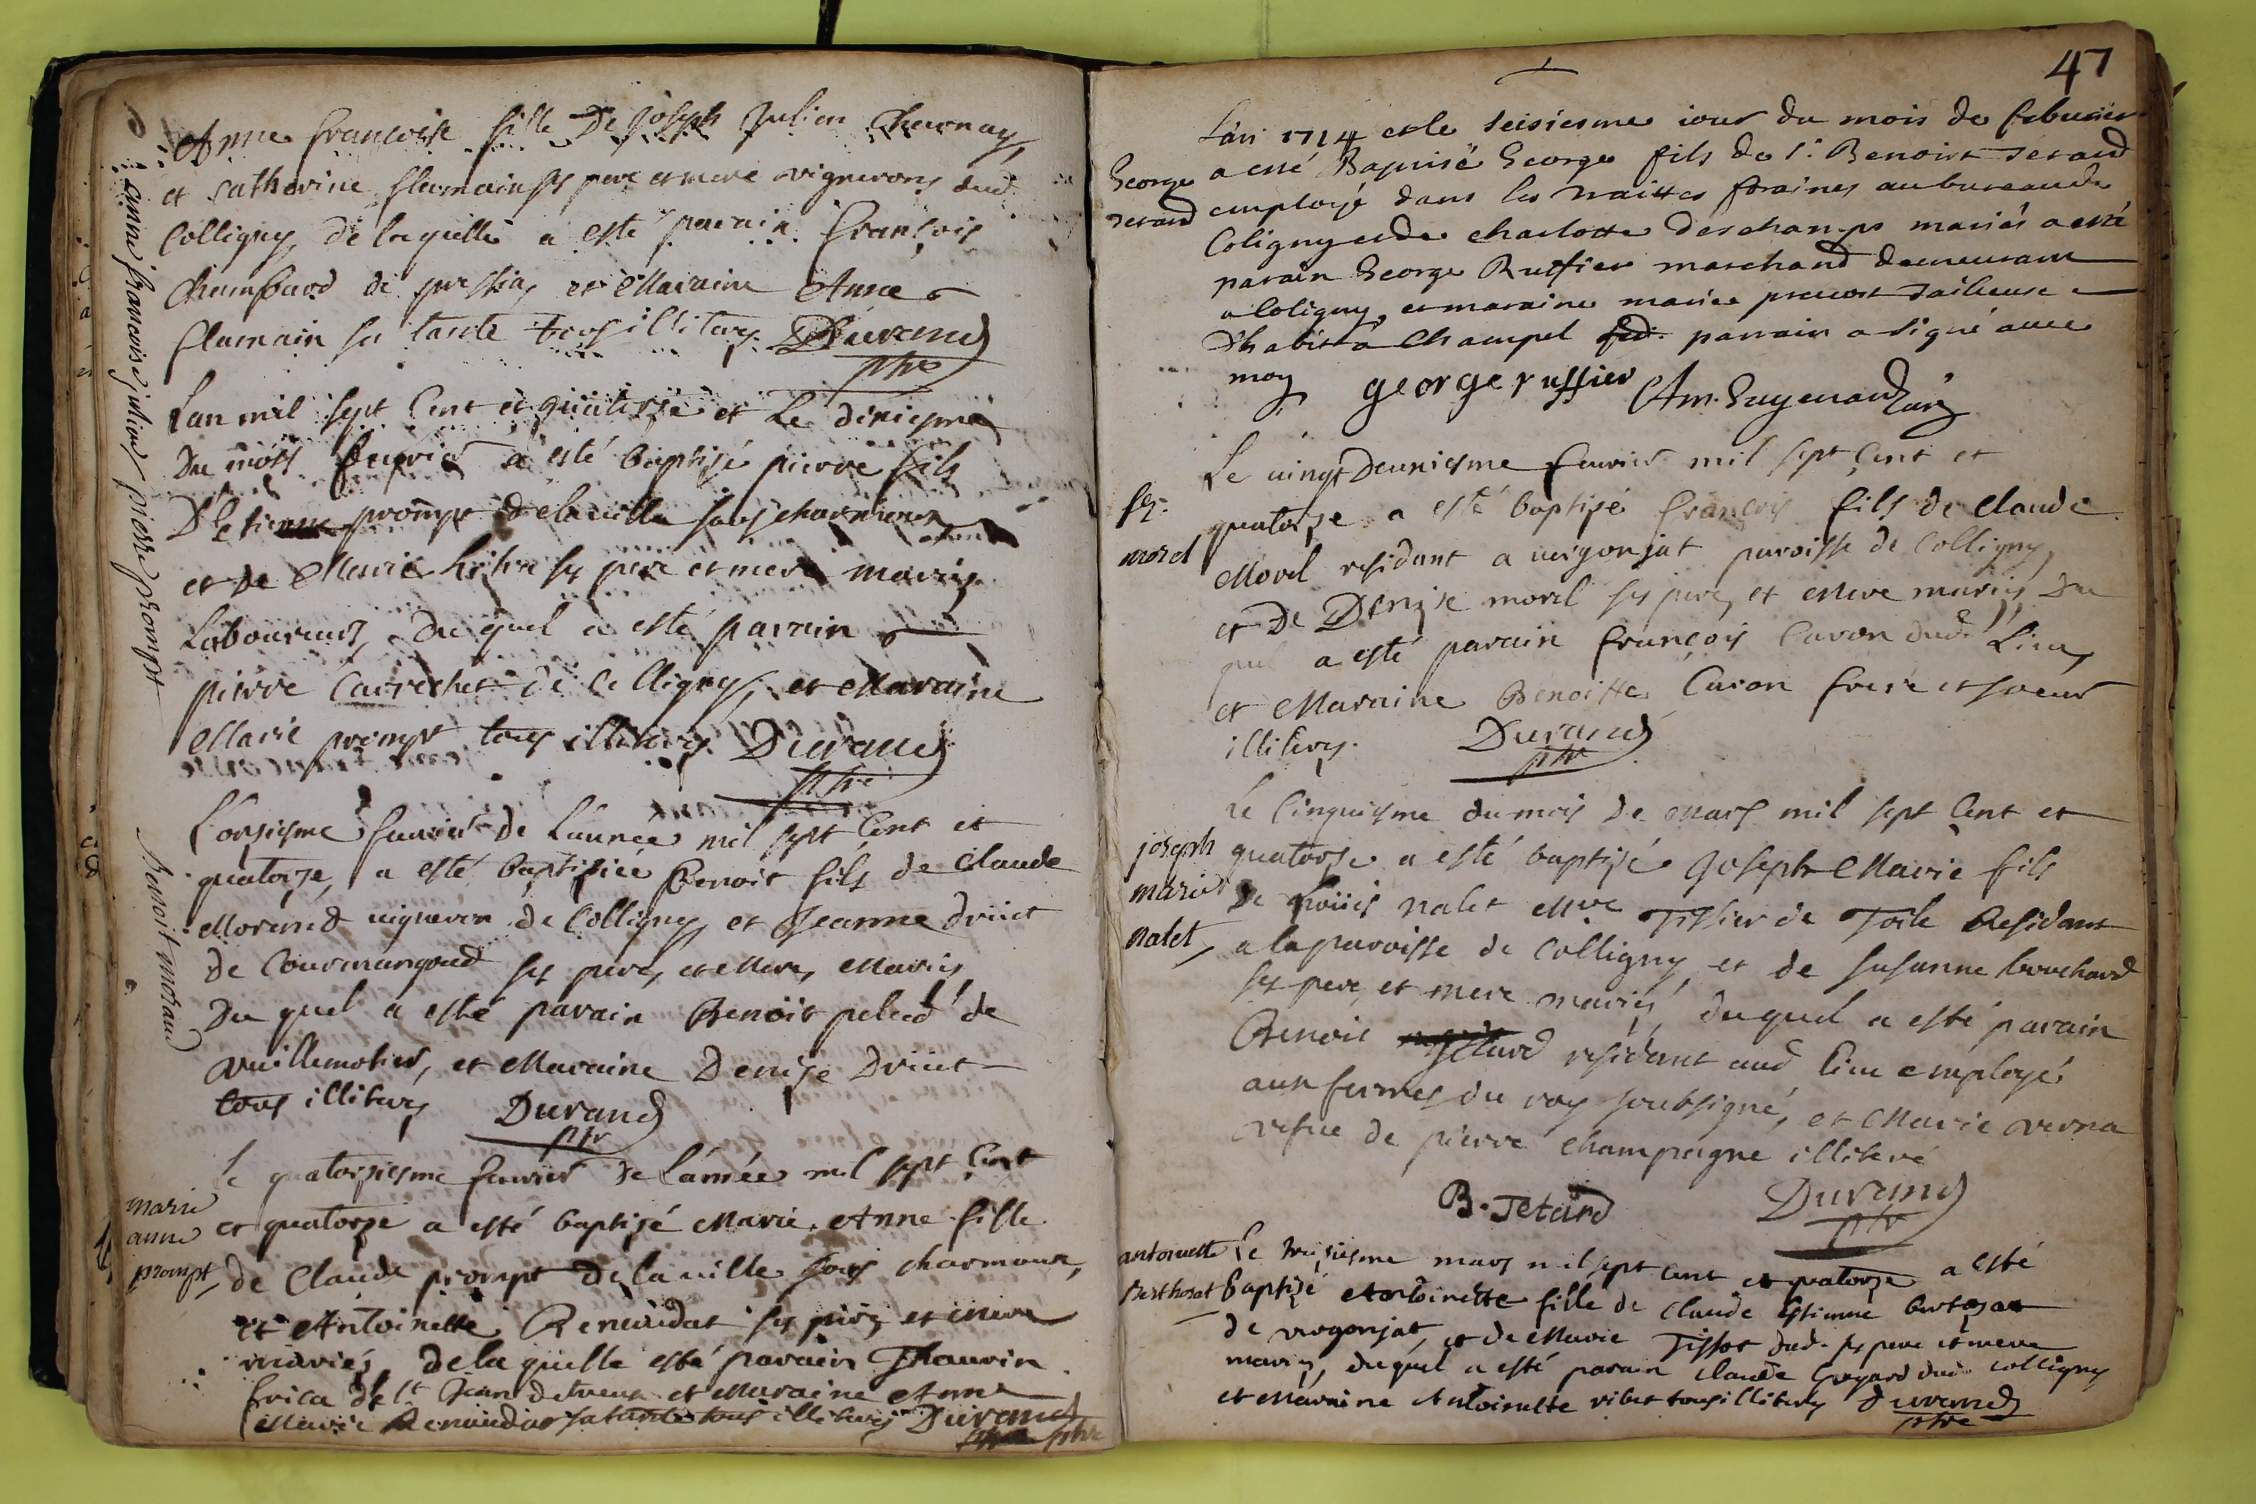 Anne francoise fille De Joseph Julien Chevrnay
et Catherine flamain ses pere et mere vignerons dud.
Colligny de laquelle a esté parain françois
Chambard de pressia, et Maraine Anne
flamain sa tante tous illiterez Durand
ptre
anne francoise julien
Lan mil sept Cent et quatorze et Le dixiesme
Du mois feuvrier a esté baptisé pierre fils
D'Etienne prompt de laville sous charmoux
et de Marie ses pere et mere mariez
Laboureurs, du quel a esté parain
pierre Carrechet de Colligny, et Maraine
Marie prompt tous illiterez Durand
ptre
pierre prompt
L'onziesme feuvrier de L'année mil sept Cent et
quatorze, a esté baptisée Benoit fils de Claude
Morand vigneron de Colligny et Jeanne druict
de Courmangoud ses pere, et Mere, Mariez
Du quel a esté parain Benoit pelud de
Vuillemotier, et Maraine Denise Druict
tous illiterez Durand
ptr
Benoit morand
Le quatorziesme feuvrier de L'année mil sept Cent
et quatorze a esté baptisé Marie Anne fille
de Claude prompt De la ville sous charmoux,
et Antoinette Renaudat ses pere, et mere
mariés, de la quelle esté parain
de St Jean detreux et Maraine Anne
Marie Renaudat sa tante tous illiterez Durand
ptre
marie
anne
prompt
47
L'an 1714 et le seisiesme iour du mois de feburier
a esté Baptisé George fils de Sr. Benoist Jetard
employé dans les traittes foraines au bureau de
Coligny et de Charlotte Deschamps mariés a esté
parain George Ruffier marchand demeurant
a Coligny, et maraine marie preuost tailieuse
D'habit a Champel led. parrain a signé auec
moy george russier Am. Guynard curé
George
Jetard
Le uingt Deuxiesme feuvrier mil sept Cent et
quatorze a esté baptisé françois fils de Claude
Morel residant a uergonjat paroisse de Colligny,
et De Denyse morel ses pere, et Mere mariez Du
quel a esté parain françois Caron dud. Lieu,
et Maraine Benoitte Caron frere et soeur
illiterez. Durand
ptr
fs.
morel
Le Cinquiesme du mois de Mars mil sept Cent et
quatorze a esté baptisé Joseph Marie fils
De Louis nalet Mre Tissier de Toile Residant
a la paroisse de Colligny et de Susanne bouchard
ses pere, et mere mariez, duquel a esté parain
Benoit Jetard residant aud Lieu employé
aux fermes du roy soubsigné, et Marie verna
vefue de pierre Champagne illiteré
B. Jetard Durand
ptr
joseph
marie
nalet
Le treiziesme mars mil sept cent et quatorze a esté
baptisé Antoinette fille de Claude Estienne bertozat
de vergonjat, et de Marie Tissot dud. ses pere et mere
mariez, duquel a esté parain Claude Goyard dud colligny
et Maraine Antoinette vibert tous illiterez Durand
ptre
antoinette
Berthozat